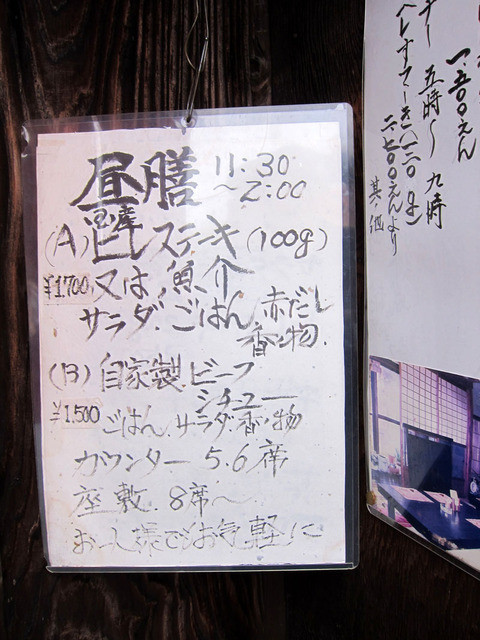 昼膳 11:30
～2:00
国産
(A)ヒレステキ(100g)
¥1700 又は魚介
サラダ.ごはん 赤だし
香の物.
(B)自家製ビーフ
シチュー
¥1,500 ごはん.サラダ.香の物
カウンター 5.6席
座敷.8席～
お一人様でもお気軽に
五時～九時
一.五〇〇えん
ヘレすてーき(一二〇g)
二.七〇〇えんより
其の他